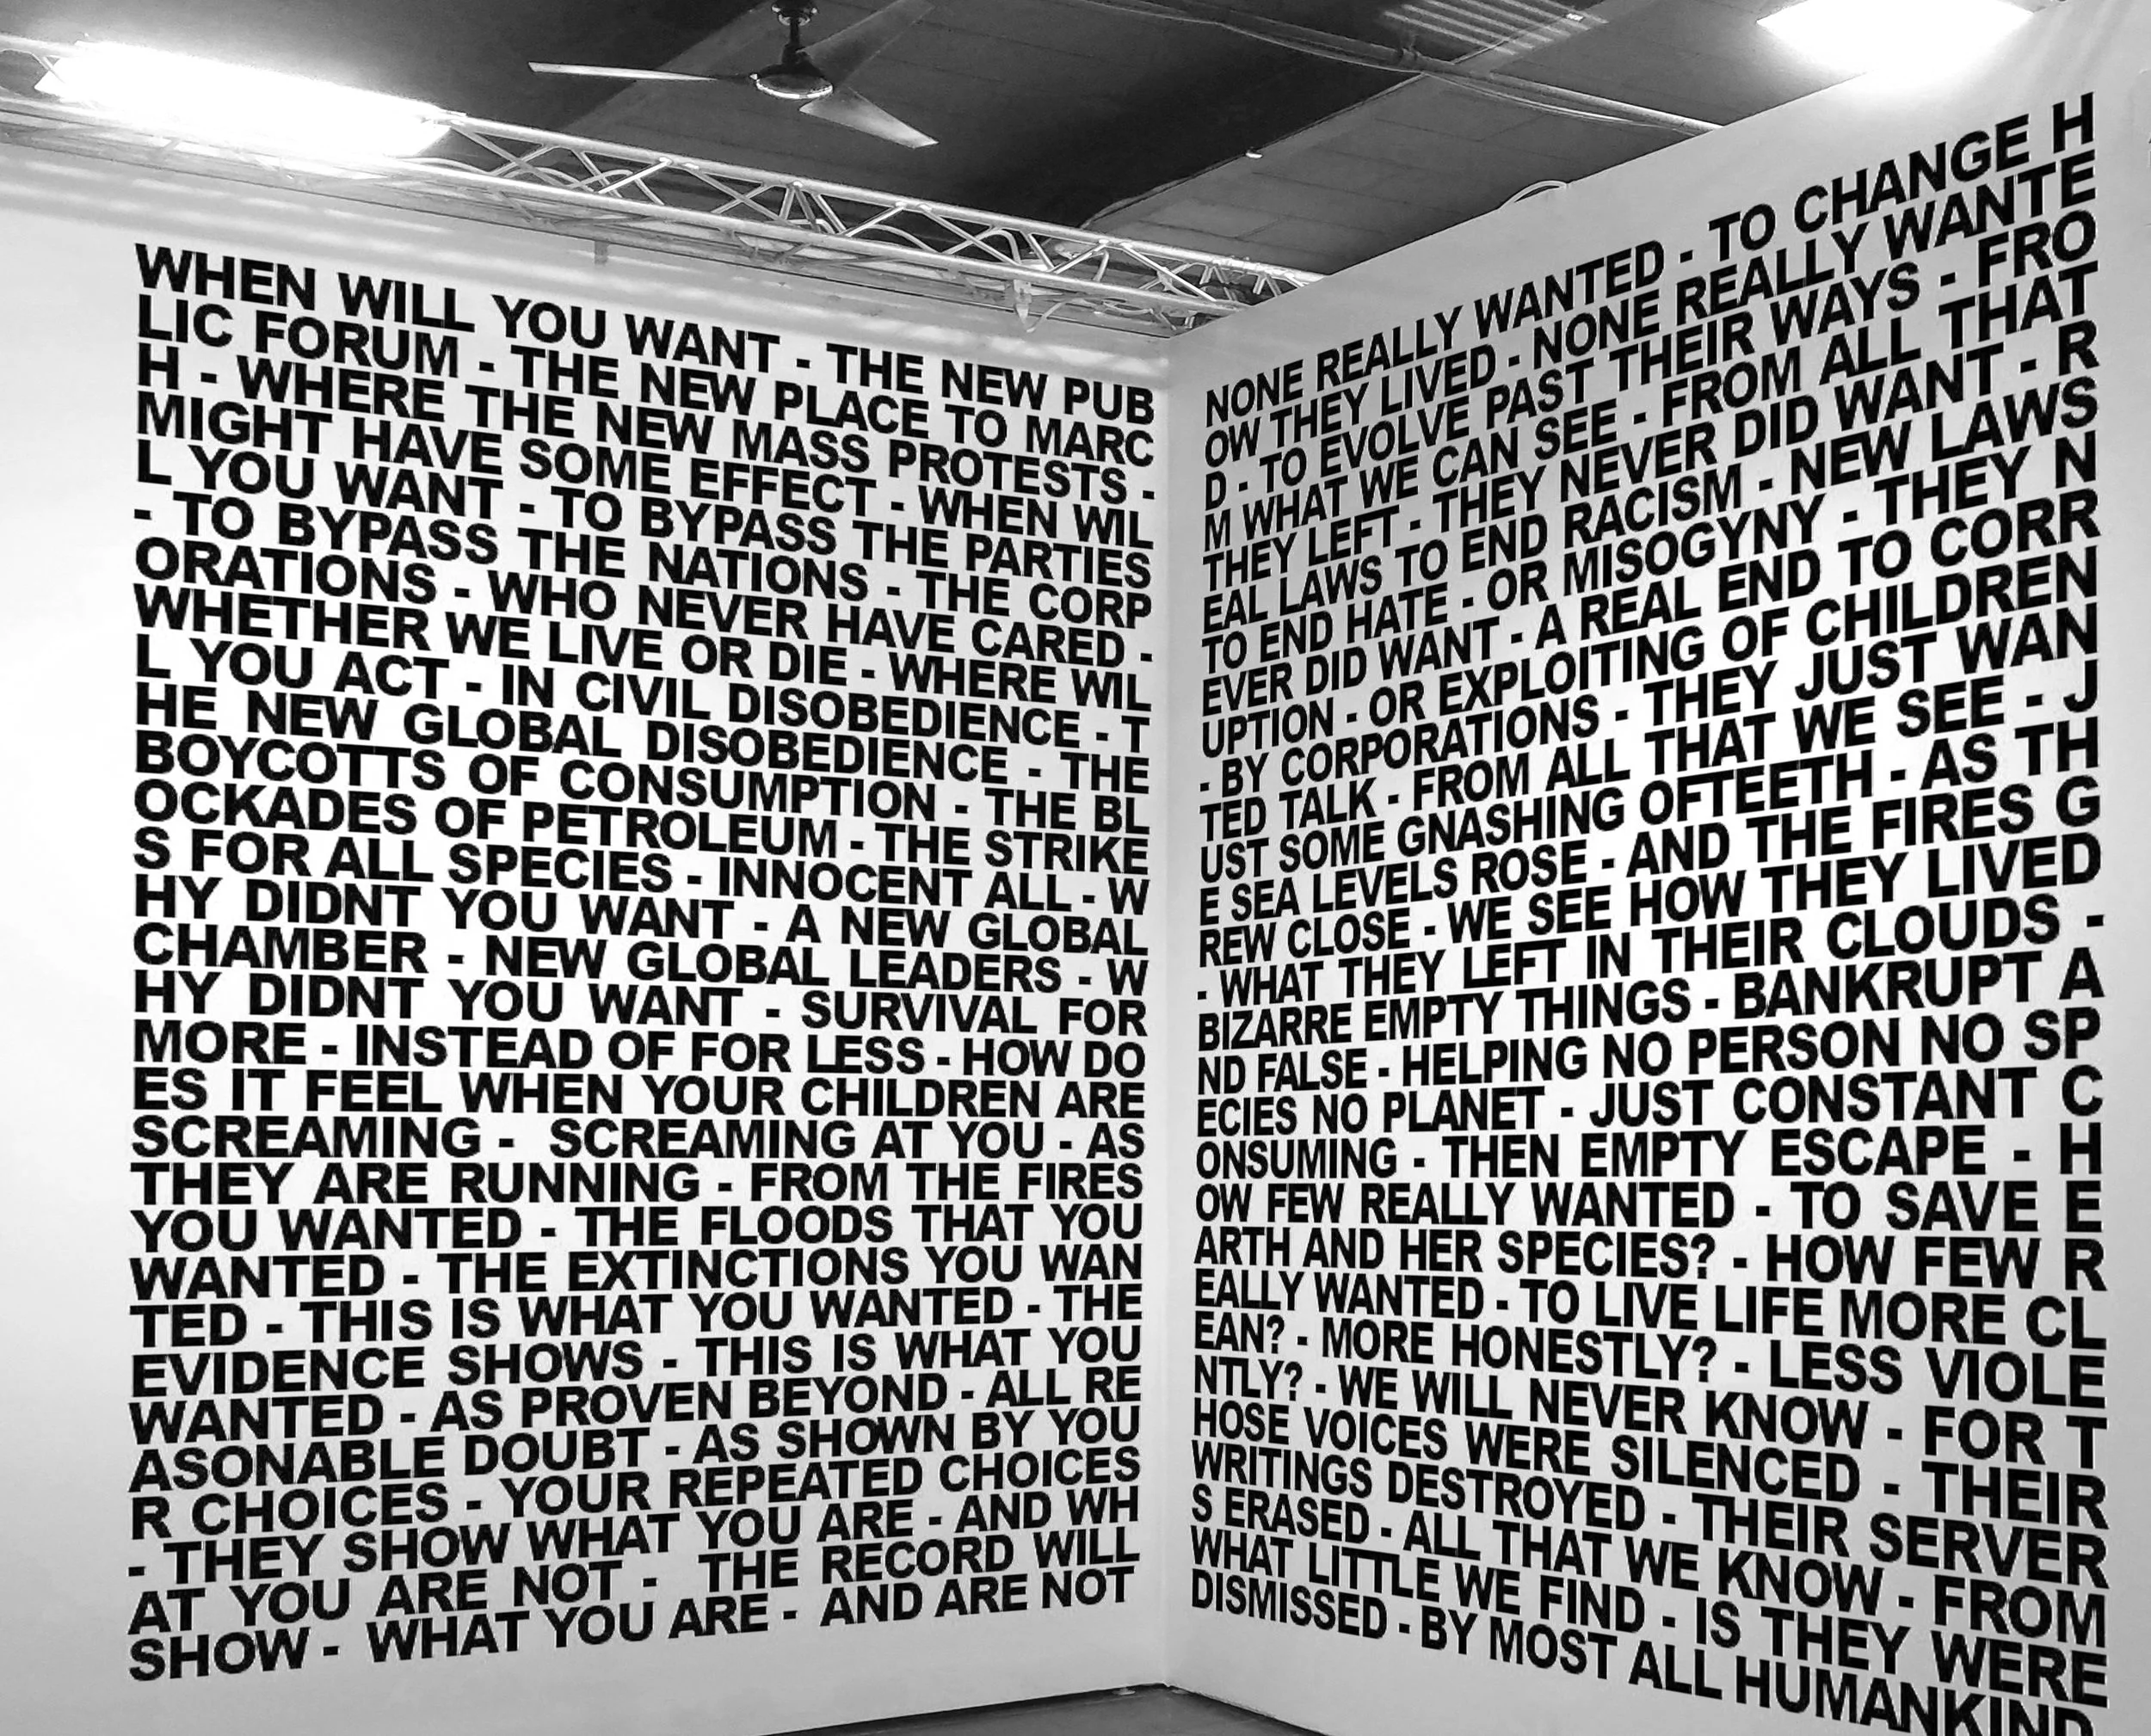 WHEN WILL YOU WANT - THE NEW PUB
LIC FORUM - THE NEW PLACE TO MARC
H - WHERE THE NEW MASS PROTESTS -
MIGHT HAVE SOME EFFECT - WHEN WIL
L YOU WANT - TO BYPASS THE PARTIES
- TO BYPASS THE NATIONS - THE CORP
ORATIONS - WHO NEVER HAVE CARED -
WHETHER WE LIVE OR DIE - WHERE WIL
L YOU ACT - IN CIVIL DISOBEDIENCE - T
HE NEW GLOBAL DISOBEDIENCE - THE
BOYCOTTS OF CONSUMPTION - THE BL
OCKADES OF PETROLEUM - THE STRIKE
S FOR ALL SPECIES - INNOCENT ALL - W
HY DIDNT YOU WANT - A NEW GLOBAL
CHAMBER - NEW GLOBAL LEADERS - W
HY DIDNT YOU WANT - SURVIVAL FOR
MORE - INSTEAD OF FOR LESS - HOW DO
ES IT FEEL WHEN YOUR CHILDREN ARE
SCREAMING - SCREAMING AT YOU - AS
THEY ARE RUNNING - FROM THE FIRES
YOU WANTED - THE FLOODS THAT YOU
WANTED - THE EXTINCTIONS YOU WAN
TED - THIS IS WHAT YOU WANTED - THE
EVIDENCE SHOWS - THIS IS WHAT YOU
WANTED - AS PROVEN BEYOND - ALL RE
ASONABLE DOUBT - AS SHOWN BY YOU
R CHOICES - YOUR REPEATED CHOICES
- THEY SHOW WHAT YOU ARE - AND WH
AT YOU ARE NOT - THE RECORD WILL
SHOW - WHAT YOU ARE - AND ARE NOT
NONE REALLY WANTED - TO CHANGE H
OW THEY LIVED - NONE REALLY WANTE
D - TO EVOLVE PAST THEIR WAYS - FRO
M WHAT WE CAN SEE - FROM ALL THAT
THEY LEFT - THEY NEVER DID WANT - R
EAL LAWS TO END RACISM - NEW LAWS
TO END HATE - OR MISOGYNY - THEY N
EVER DID WANT - A REAL END TO CORR
UPTION - OR EXPLOITING OF CHILDREN
- BY CORPORATIONS - THEY JUST WAN
TED TALK - FROM ALL THAT WE SEE - J
UST SOME GNASHING OFTEETH - AS TH
E SEA LEVELS ROSE - AND THE FIRES G
REW CLOSE - WE SEE HOW THEY LIVED
- WHAT THEY LEFT IN THEIR CLOUDS -
BIZARRE EMPTY THINGS - BANKRUPT A
ND FALSE - HELPING NO PERSON NO SP
ECIES NO PLANET - JUST CONSTANT C
ONSUMING - THEN EMPTY ESCAPE - H
OW FEW REALLY WANTED - TO SAVE E
ARTH AND HER SPECIES? - HOW FEW R
EALLY WANTED - TO LIVE LIFE MORE CL
EAN? - MORE HONESTLY? - LESS VIOLE
NTLY? - WE WILL NEVER KNOW - FOR T
HOSE VOICES WERE SILENCED - THEIR
WRITINGS DESTROYED - THEIR SERVER
S ERASED - ALL THAT WE KNOW - FROM
WHAT LITTLE WE FIND - IS THEY WERE
DISMISSED - BY MOST ALL HUMANKIND